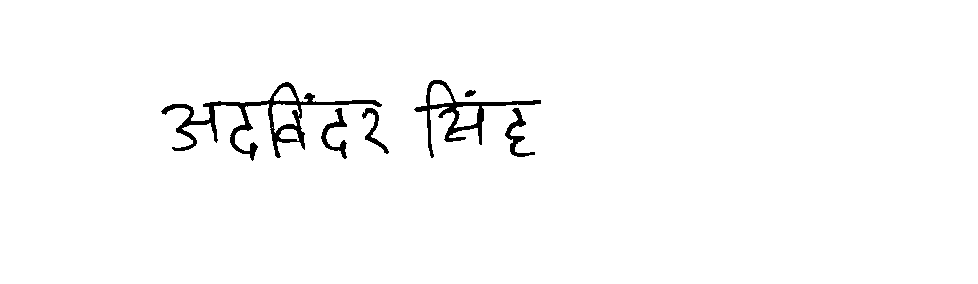 अदबिंदर सिंह